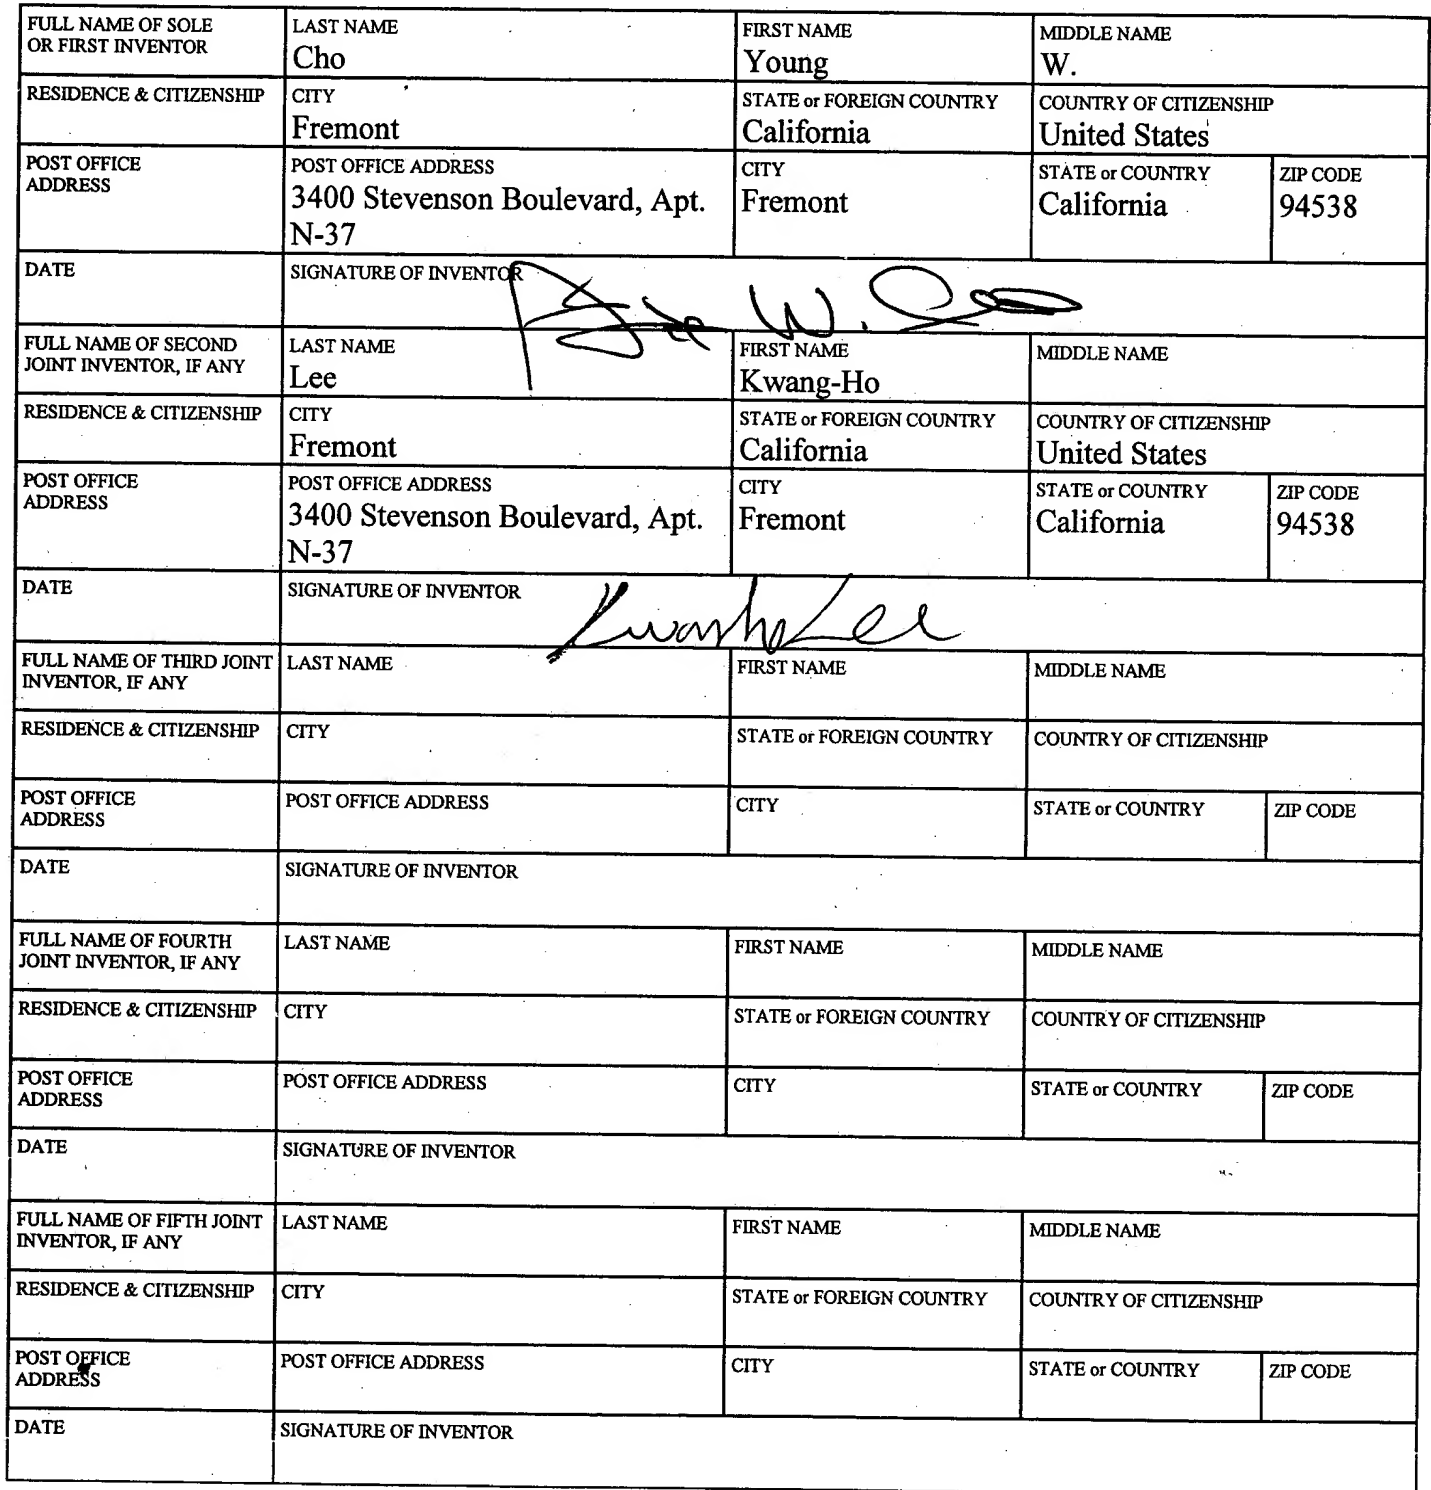 FULL NAME OF SOLE
OR FIRST INVENTOR
LAST NAME
Cho
FIRST NAME
Young
MIDDLE NAME
W.
RESIDENCE & CITIZENSHIP
CITY
Fremont
STATE or FOREIGN COUNTRY
California
COUNTRY OF CITIZENSHIP
United States
POST OFFICE
ADDRESS
POST OFFICE ADDRESS
3400 Stevenson Boulevard, Apt.
N-37
CITY
Fremont
STATE or COUNTRY
California
ZIP CODE
94538
DATE
SIGNATURE OF INVENTOR
FULL NAME OF SECOND
JOINT INVENTOR, IF ANY
LAST NAME
Lee
FIRST NAME
Kwang-Ho
MIDDLE NAME
RESIDENCE & CITIZENSHIP
CITY
Fremont
STATE or FOREIGN COUNTRY
California
COUNTRY OF CITIZENSHIP
United States
POST OFFICE
ADDRESS
POST OFFICE ADDRESS
3400 Stevenson Boulevard, Apt.
N-37
CITY
Fremont
STATE or COUNTRY
California
ZIP CODE
94538
DATE
SIGNATURE OF INVENTOR
Lee
FULL NAME OF THIRD JOINT
INVENTOR, IF ANY
LAST NAME
FIRST NAME
MIDDLE NAME
RESIDENCE & CITIZENSHIP
CITY
STATE or FOREIGN COUNTRY
COUNTRY OF CITIZENSHIP
POST OFFICE
ADDRESS
POST OFFICE ADDRESS
CITY
STATE or COUNTRY
ZIP CODE
DATE
SIGNATURE OF INVENTOR
FULL NAME OF FOURTH
JOINT INVENTOR, IF ANY
LAST NAME
FIRST NAME
MIDDLE NAME
RESIDENCE & CITIZENSHIP
CITY
STATE or FOREIGN COUNTRY
COUNTRY OF CITIZENSHIP
POST OFFICE
ADDRESS
POST OFFICE ADDRESS
CITY
STATE or COUNTRY
ZIP CODE
DATE
SIGNATURE OF INVENTOR
FULL NAME OF FIFTH JOINT
INVENTOR, IF ANY
LAST NAME
FIRST NAME
MIDDLE NAME
RESIDENCE & CITIZENSHIP
CITY
STATE or FOREIGN COUNTRY
COUNTRY OF CITIZENSHIP
POST OFFICE
ADDRESS
POST OFFICE ADDRESS
CITY
STATE or COUNTRY
ZIP CODE
DATE
SIGNATURE OF INVENTOR